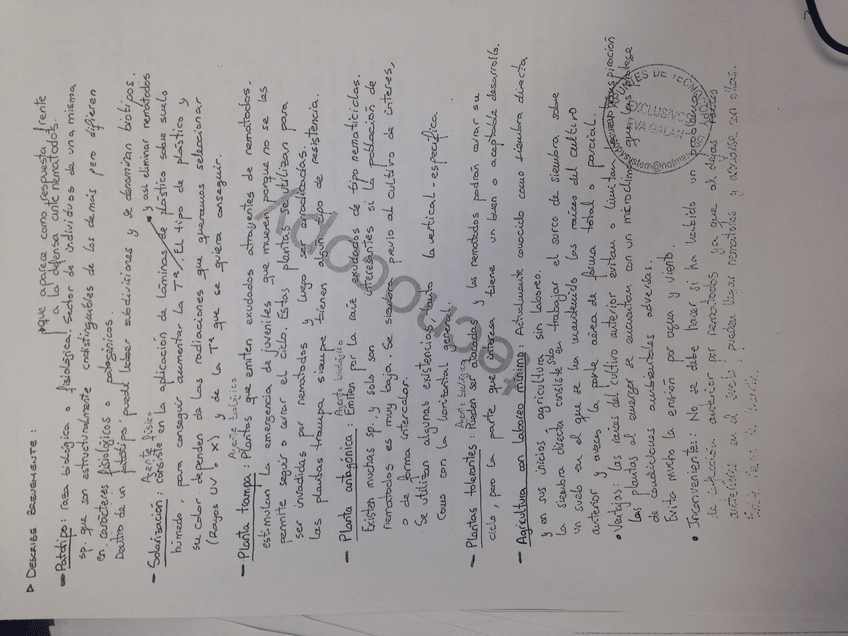 ▷ DESCRIBE BREVEMENTE:
que aparece como respuesta frente
a la defensa ante nematodos.
- Patotipo: raza biológica o fisiológica. Sector de individuos de una misma
sp. que son estructuralmente indistinguibles de los demás pero difieren
en carácteres fisiológicos o patogénicos.
Dentro de un patotipo puede haber subdivisiones y se denominan biotipos.
Agente físico
y así eliminar nematodos
- Solarización: consiste en la aplicación de láminas de plástico sobre suelo
húmedo, para conseguir aumentar la Tª. El tipo de plástico y
su color dependen de las radiaciones que queramos seleccionar
(Rayos UV o X) y de la Tª que se quiera conseguir.
Agente biológico
- Planta trampa: Plantas que emiten exudados atrayentes de nematodos.
estimulan la emergencia de juveniles que mueren porque no se les
permite seguir o cerrar el ciclo. Estas plantas se utilizan para
ser invadidas por nematodos y luego ser erradicadas.
Las plantas trampa siempre tienen algún tipo de resistencia.
Agente biológico
- Planta antagónica: Emiten por la raíz exudados de tipo nematicidas.
Existen muchas sp. y solo son interesantes si la población de
nematodos es muy baja. Se siembra previo al cultivo de interés,
o de forma intercalar.
Se utilizan algunas resistencias tanto la vertical-específica
como con la horizontal general.
Agente biológico
- Plantas tolerantes: Pueden ser atacadas y los nematodos podrán cerrar su
ciclo, pero la parte que interesa tiene un buen o aceptable desarrollo.
- Agricultura con laboreo mínimo: Actualmente conocido como siembra directa
y en sus inicios agricultura sin laboreo.
La siembra directa consiste en solo trabajar el surco de siembra sobre
un suelo en el que se ha mantenido las raíces del cultivo
anterior y a veces la parte aérea de forma total o parcial.
• Ventajas: las raíces del cultivo anterior evitan o limitan
las plantas al emerger se encuentran con un microclima que las protege
de condiciones ambientales adversas.
Evita mucho la erosión por agua y viento.
• Inconvenientes: No se debe hacer si ha habido un problema
de infección anterior por nematodos ya que al dejar raíces
anteriores en el suelo pueden llegar nematodos y aislarse con ellas.
tecnoopy
DE TECNO
EXCLUSIVOS
EVA GALAN